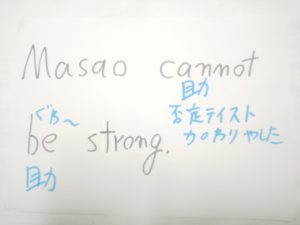 Masao cannot
助
否定テイスト
加わりやした
ぐわ〜
be strong.
助